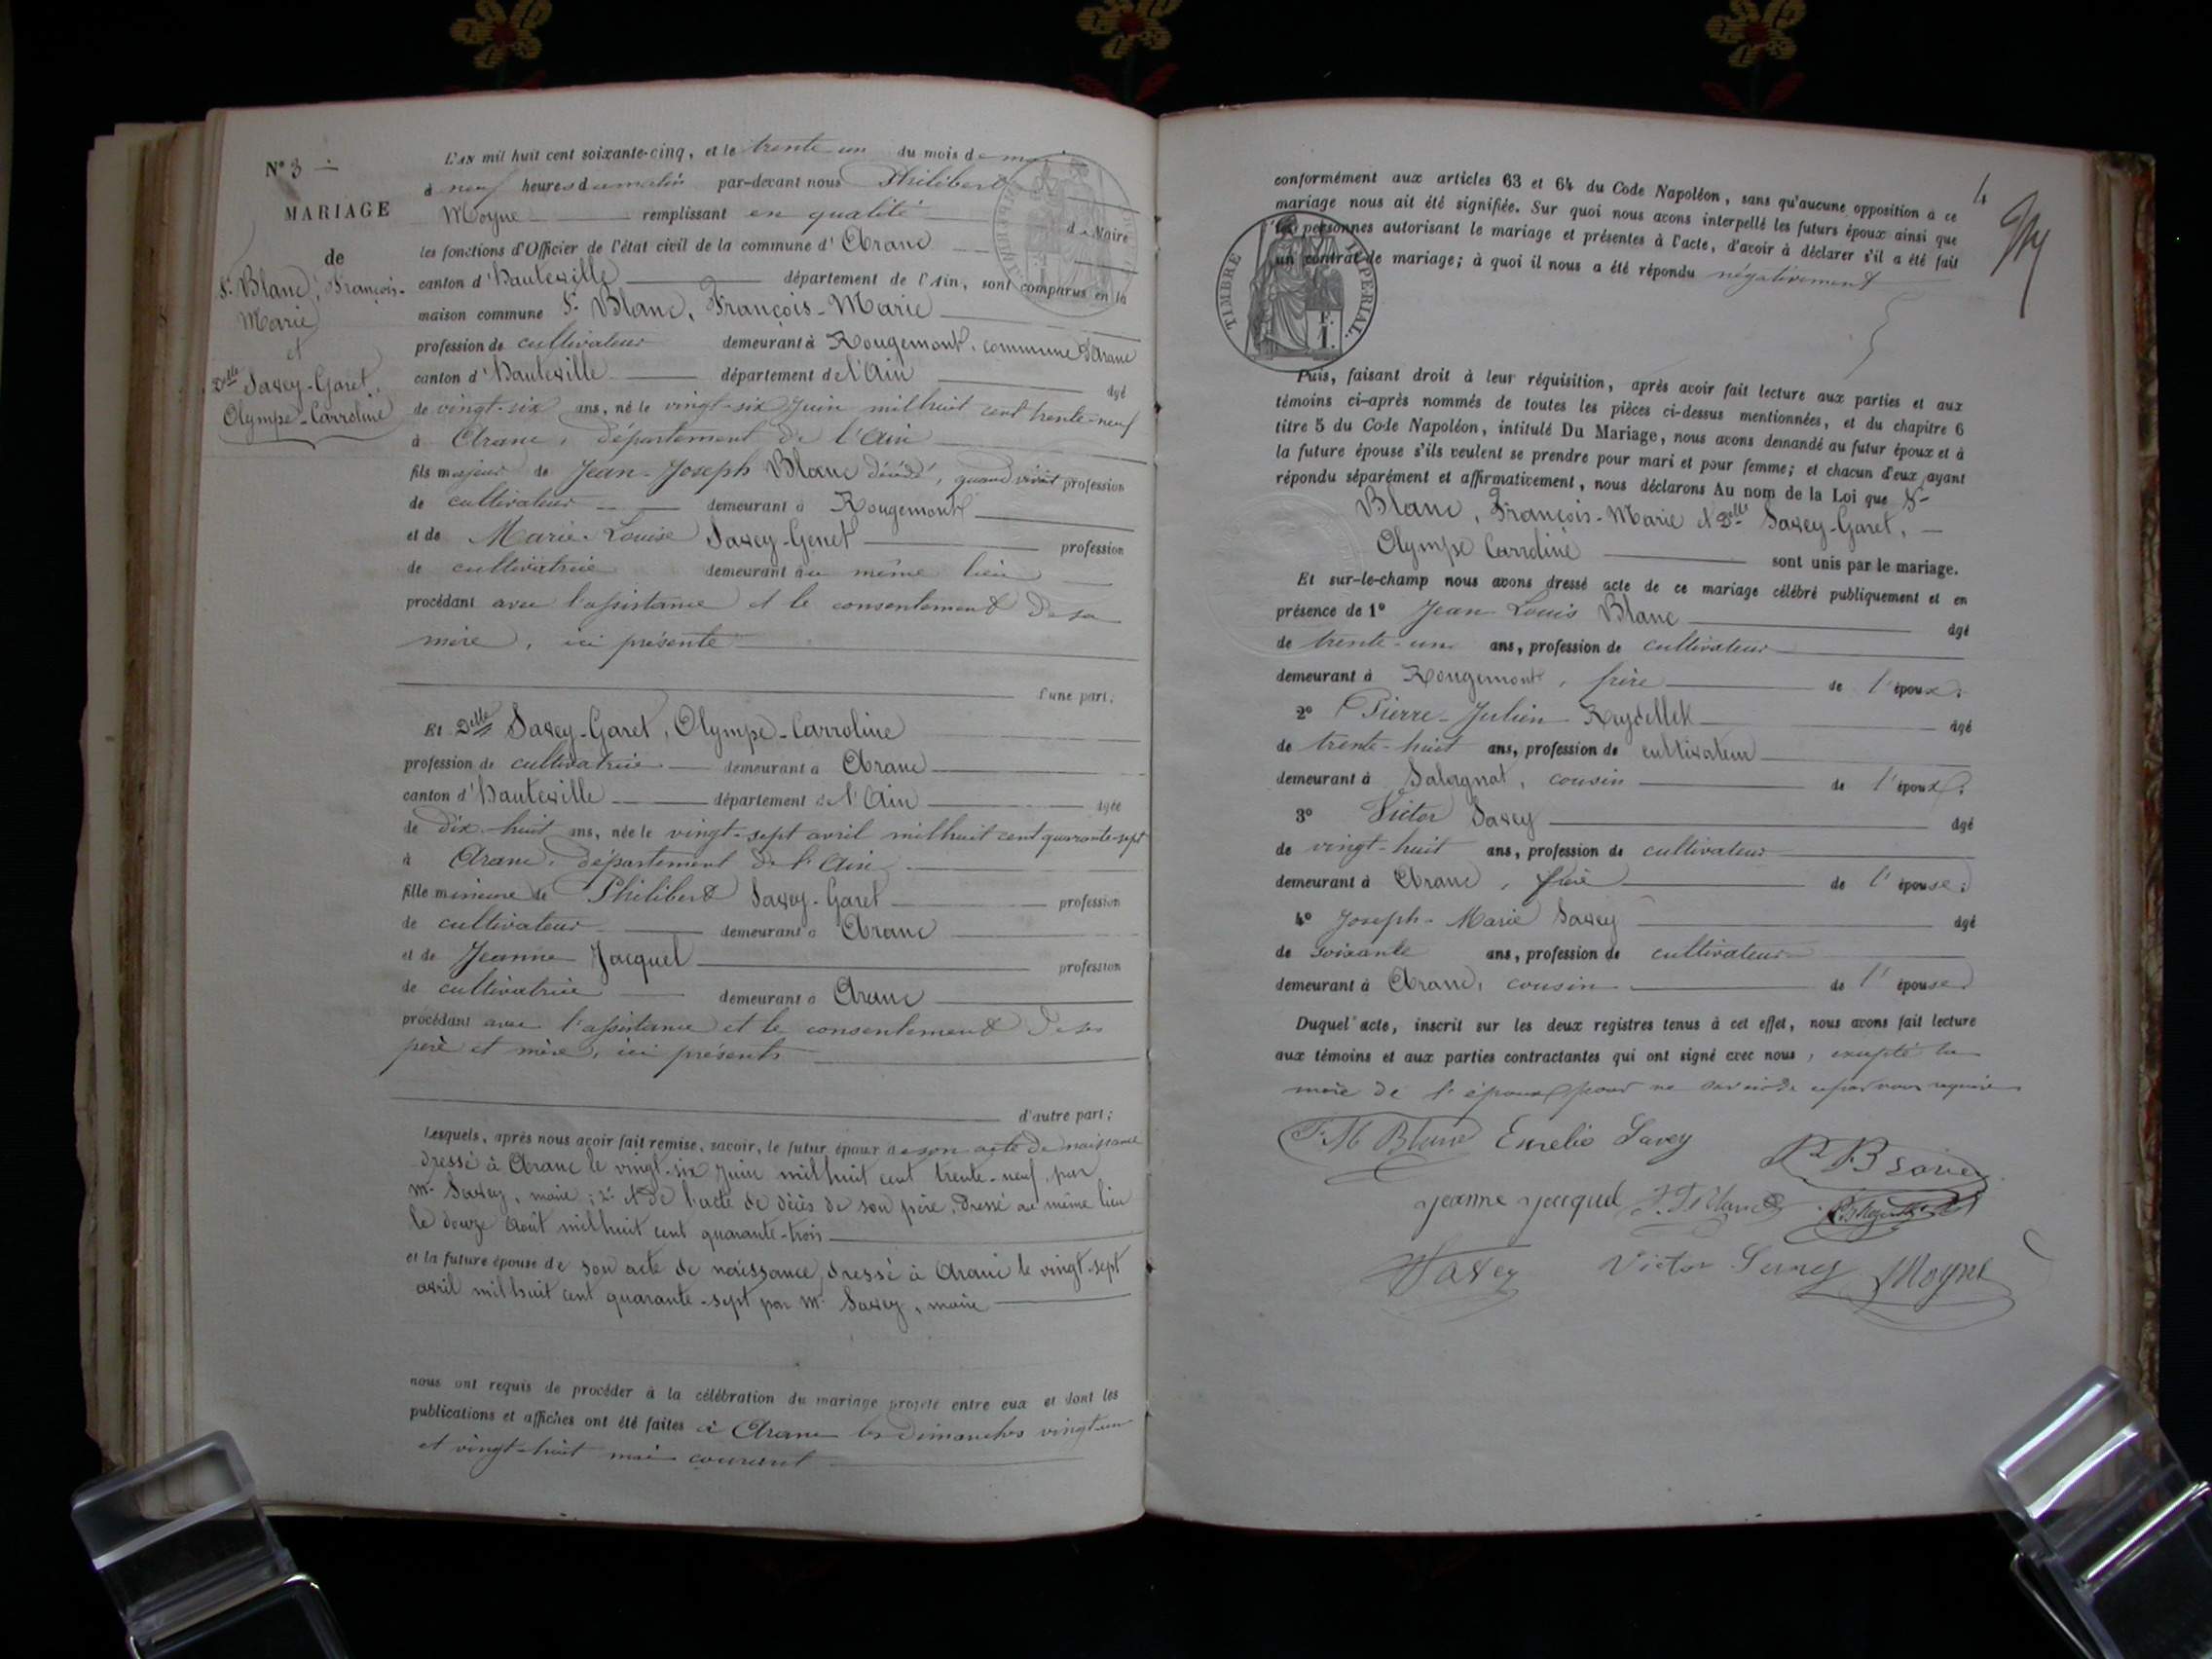 N° 3
MARIAGE
de
Sr Blanc, François-
Marie
et
Delle Savey-Garet,
Olympe-Carroline
L'AN mil huit cent soixante-cinq, et le trente un du mois de mai
à neuf heures du matin par-devant nous Philibert
Moyne remplissant en qualité de Maire
les fonctions d'Officier de l'état civil de la commune d'Aranc
canton d'Hauteville département de l'Ain, sont comparus en la
maison commune Sr Blanc, François-Marie
profession de cultivateur demeurant à Rougemont, commune d'Aranc
canton d'Hauteville département de l'Ain âgé
de vingt-six ans, né le vingt-six Juin mil huit cent trente-neuf
à Aranc, département de l'Ain
fils majeur de Jean-Joseph Blanc décédé, quand vivait profession
de cultivateur demeurant à Rougemont
et de Marie-Louise Savey-Genet profession
de cultivatrice demeurant au même lieu
procédant avec l'assistance et le consentement de sa
mère, ici présente
d'une part;
Et Delle Savey-Garet, Olympe-Carroline
profession de cultivatrice demeurant à Aranc
canton d'Hauteville département de l'Ain âgée
de dix-huit ans, née le vingt-sept avril mil huit cent quarante-sept
à Aranc, département de l'Ain
fille mineure de Philibert Savey-Garet profession
de cultivateur demeurant à Aranc
et de Jeanne Jacquet profession
de cultivatrice demeurant à Aranc
procédant avec l'assistance et le consentement de ses
père et mère, ici présents
d'autre part;
Lesquels, après nous avoir fait remise, savoir, le futur époux de son acte de naissance
dressé à Aranc le vingt-six Juin mil huit cent trente-neuf, par
Mr Savey, maire; 2° et de l'acte de décès de son père, dressé au même lieu
le douze Août mil huit cent quarante-trois
et la future épouse de son acte de naissance, dressé à Aranc le vingt-sept
avril mil huit cent quarante-sept par Mr Savey, maire
nous ont requis de procéder à la célébration du mariage projeté entre eux et dont les
publications et affiches ont été faites à Aranc les dimanches vingt-un
et vingt-huit mai courant
4
conformément aux articles 63 et 64 du Code Napoléon, sans qu'aucune opposition à ce
mariage nous ait été signifiée. Sur quoi nous avons interpellé les futurs époux ainsi que
les personnes autorisant le mariage et présentes à l'acte, d'avoir à déclarer s'il a été fait
un contrat de mariage; à quoi il nous a été répondu négativement
TIMBRE IMPERIAL.
F.
1.
Puis, faisant droit à leur réquisition, après avoir fait lecture aux parties et aux
témoins ci-après nommés de toutes les pièces ci-dessus mentionnées, et du chapitre 6
titre 5 du Code Napoléon, intitulé Du Mariage, nous avons demandé au futur époux et à
la future épouse s'ils veulent se prendre pour mari et pour femme; et chacun d'eux ayant
répondu séparément et affirmativement, nous déclarons Au nom de la Loi que Sr
Blanc, François-Marie et Delle Savey-Garet,
Olympe Carroline sont unis par le mariage.
Et sur-le-champ nous avons dressé acte de ce mariage célébré publiquement et en
présence de 1° Jean Louis Blanc âgé
de trente-un ans, profession de cultivateur
demeurant à Rougemont, frère de l'époux;
2° Pierre-Julien Reydellet âgé
de trente-huit ans, profession de cultivateur
demeurant à cousin de l'époux;
3° Victor Savey âgé
de vingt-huit ans, profession de cultivateur
demeurant à Aranc, frère de l'épouse;
4° Joseph-Marie Savey âgé
de soixante ans, profession de cultivateur
demeurant à Aranc, cousin de l'épouse
Duquel acte, inscrit sur les deux registres tenus à cet effet, nous avons fait lecture
aux témoins et aux parties contractantes qui ont signé avec nous, excepté la
mère de l'époux pour ne savoir de ce par nous requise
F M Blanc
Savey
Jeanne Jacquet
Savey
Victor Savey
Moyne